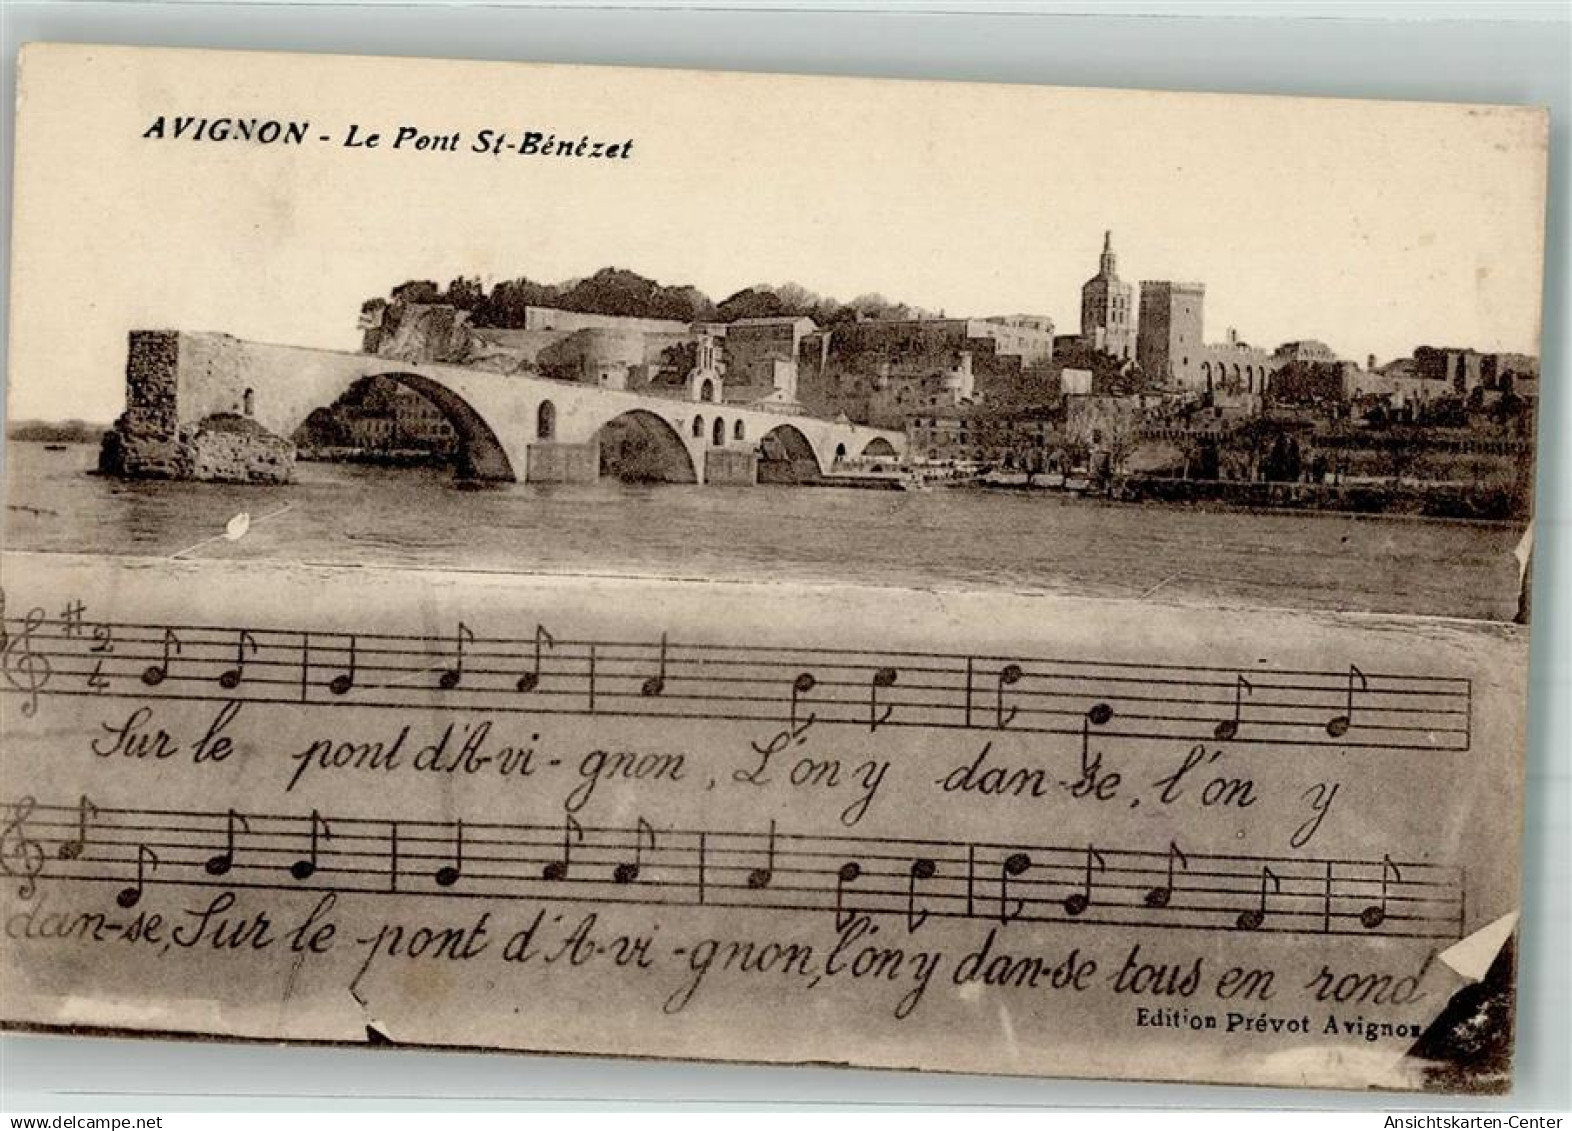 AVIGNON - Le Pont St-Bénézet
2
4
Sur le pont d'A-vi-gnon, L'on y dan-se, l'on y
dan-se, Sur le pont d'A-vi-gnon, l'on y dan-se tous en rond
Edition Prévot Avignon
delcampe.net
Ansichtskarten-Center